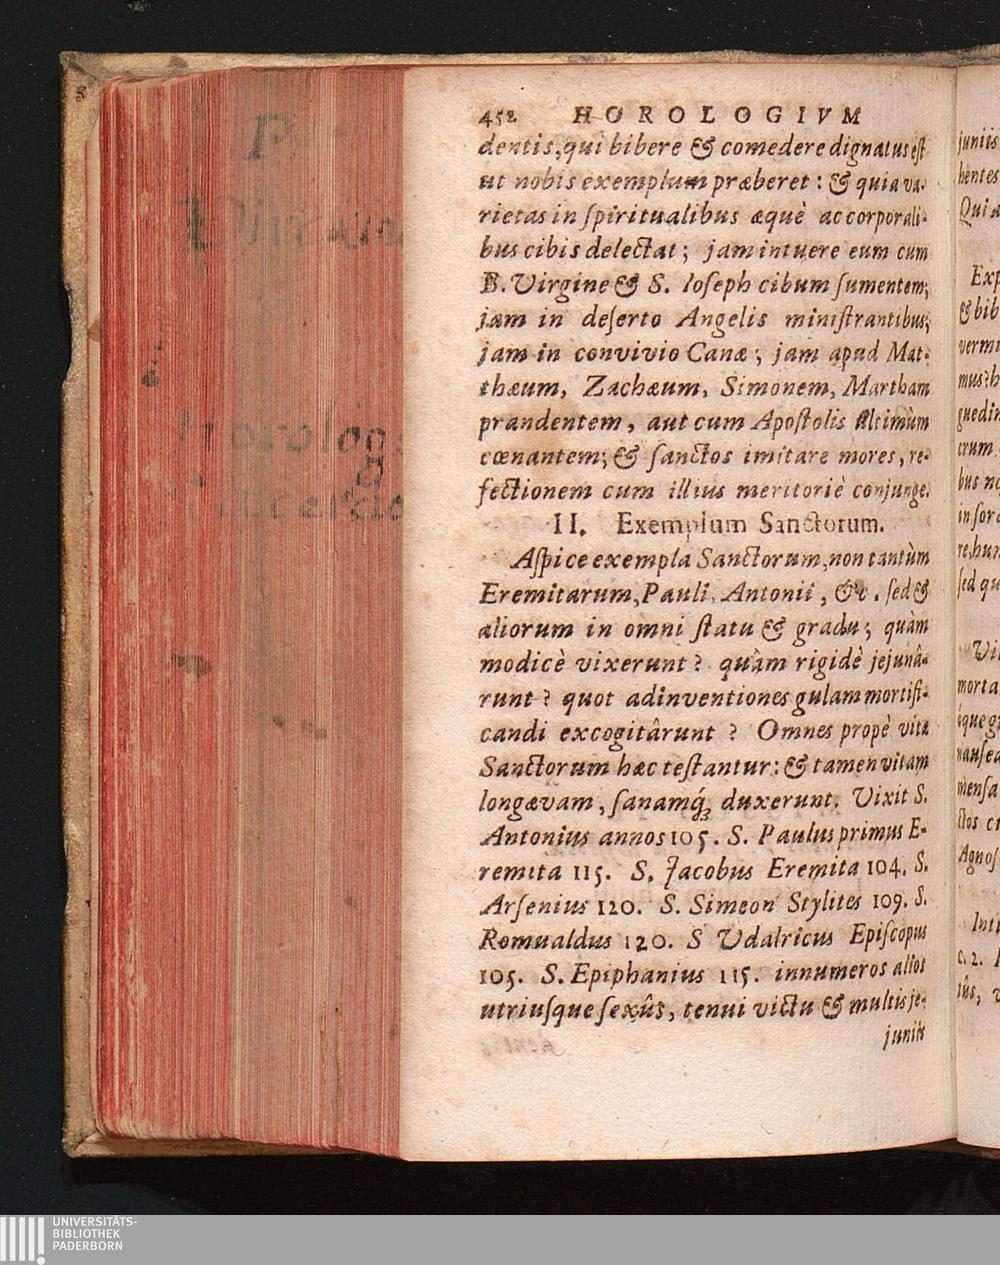 452 HOROLOGIVM
dentis, qui bibere & comedere dignatus eſt
ut nobis exemplum præberet : & quia va-
rietas in ſpiritualibus æquè ac corporali-
bus cibis delectat ; jam intuere eum cum
B. Virgine & S. Ioſeph cibum ſumentem;
jam in deſerto Angelis miniſtrantibus;
jam in convivio Canæ ; jam apud Mat-
thæum, Zachæum, Simonem, Martham
prandentem, aut cum Apoſtolis ultimùm
cœnantem; & ſanctos imitare mores, re-
fectionem cum illius meritoriè conjunge.
II. Exemplum Sanctorum.
Aſpice exempla Sanctorum, non tantùm
Eremitarum, Pauli, Antonii, &c. ſed &
aliorum in omni ſtatu & gradu ; quàm
modicè vixerunt ? quàm rigidè jejunâ-
runt ? quot adinventiones gulam mortifi-
candi excogitârunt ? Omnes propè vitæ
Sanctorum hæc teſtantur : & tamen vitam
longævam, ſanamq́ꝫ duxerunt. Vixit S.
Antonius annos 105. S. Paulus primus E-
remita 115. S. Jacobus Eremita 104. S.
Arſenius 120. S. Simeon Stylites 109. S.
Romualdus 120. S Udalricus Epiſcopus
105. S. Epiphanius 115. innumeros alios
utriuſque ſexûs, tenui victu & multis je-
juniis
juniis
hentes
Qui a
Exp
& bib
vermi
mus? h
guedin
crum.
bus no
in ſor
re, hun
ſed qu
Vil
morta
éque g
nauſea
menſa
ctos c
Agnoſ
Inti
c. 2.
iûs, v
P
Horolog
UNIVERSITÄTS-
BIBLIOTHEK
PADERBORN